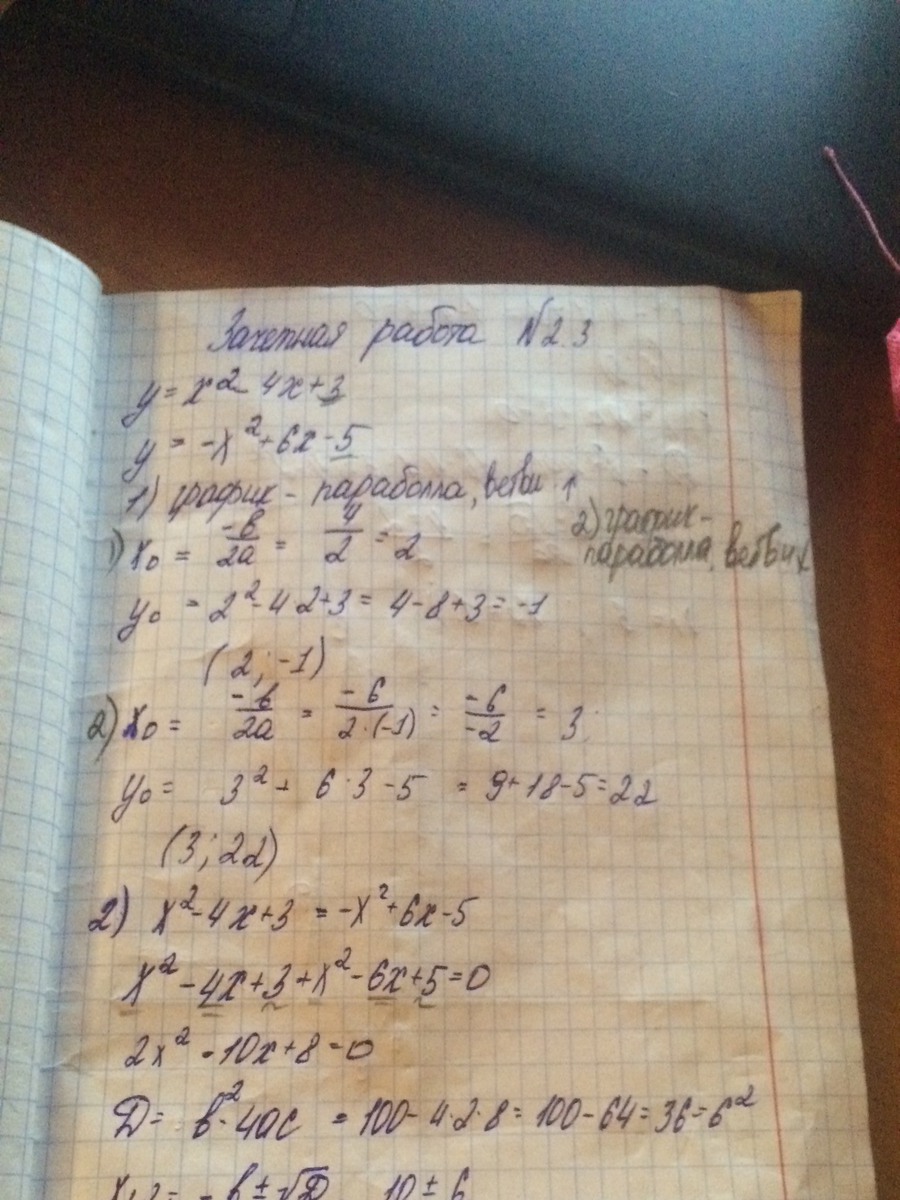 Зачетная работа N 2.3
y = x² - 4x + 3
y = -x² + 6x - 5
1) график - параболла, ветви ↑
2) график - параболла, ветви
1) x₀ = -b/2a = 4/2 = 2
y₀ = 2² - 4·2 + 3 = 4 - 8 + 3 = -1
(2; -1)
2) x₀ = -b/2a = -6/2·(-1) = -6/-2 = 3;
y₀ = 3² + 6·3 - 5 = 9 + 18 - 5 = 22
(3; 22)
2) x² - 4x + 3 = -x² + 6x - 5
x² - 4x + 3 + x² - 6x + 5 = 0
2x² - 10x + 8 = 0
D = b² - 4ac = 100 - 4·2·8 = 100 - 64 = 36 = 6²
-b ± √D 10 ± 6